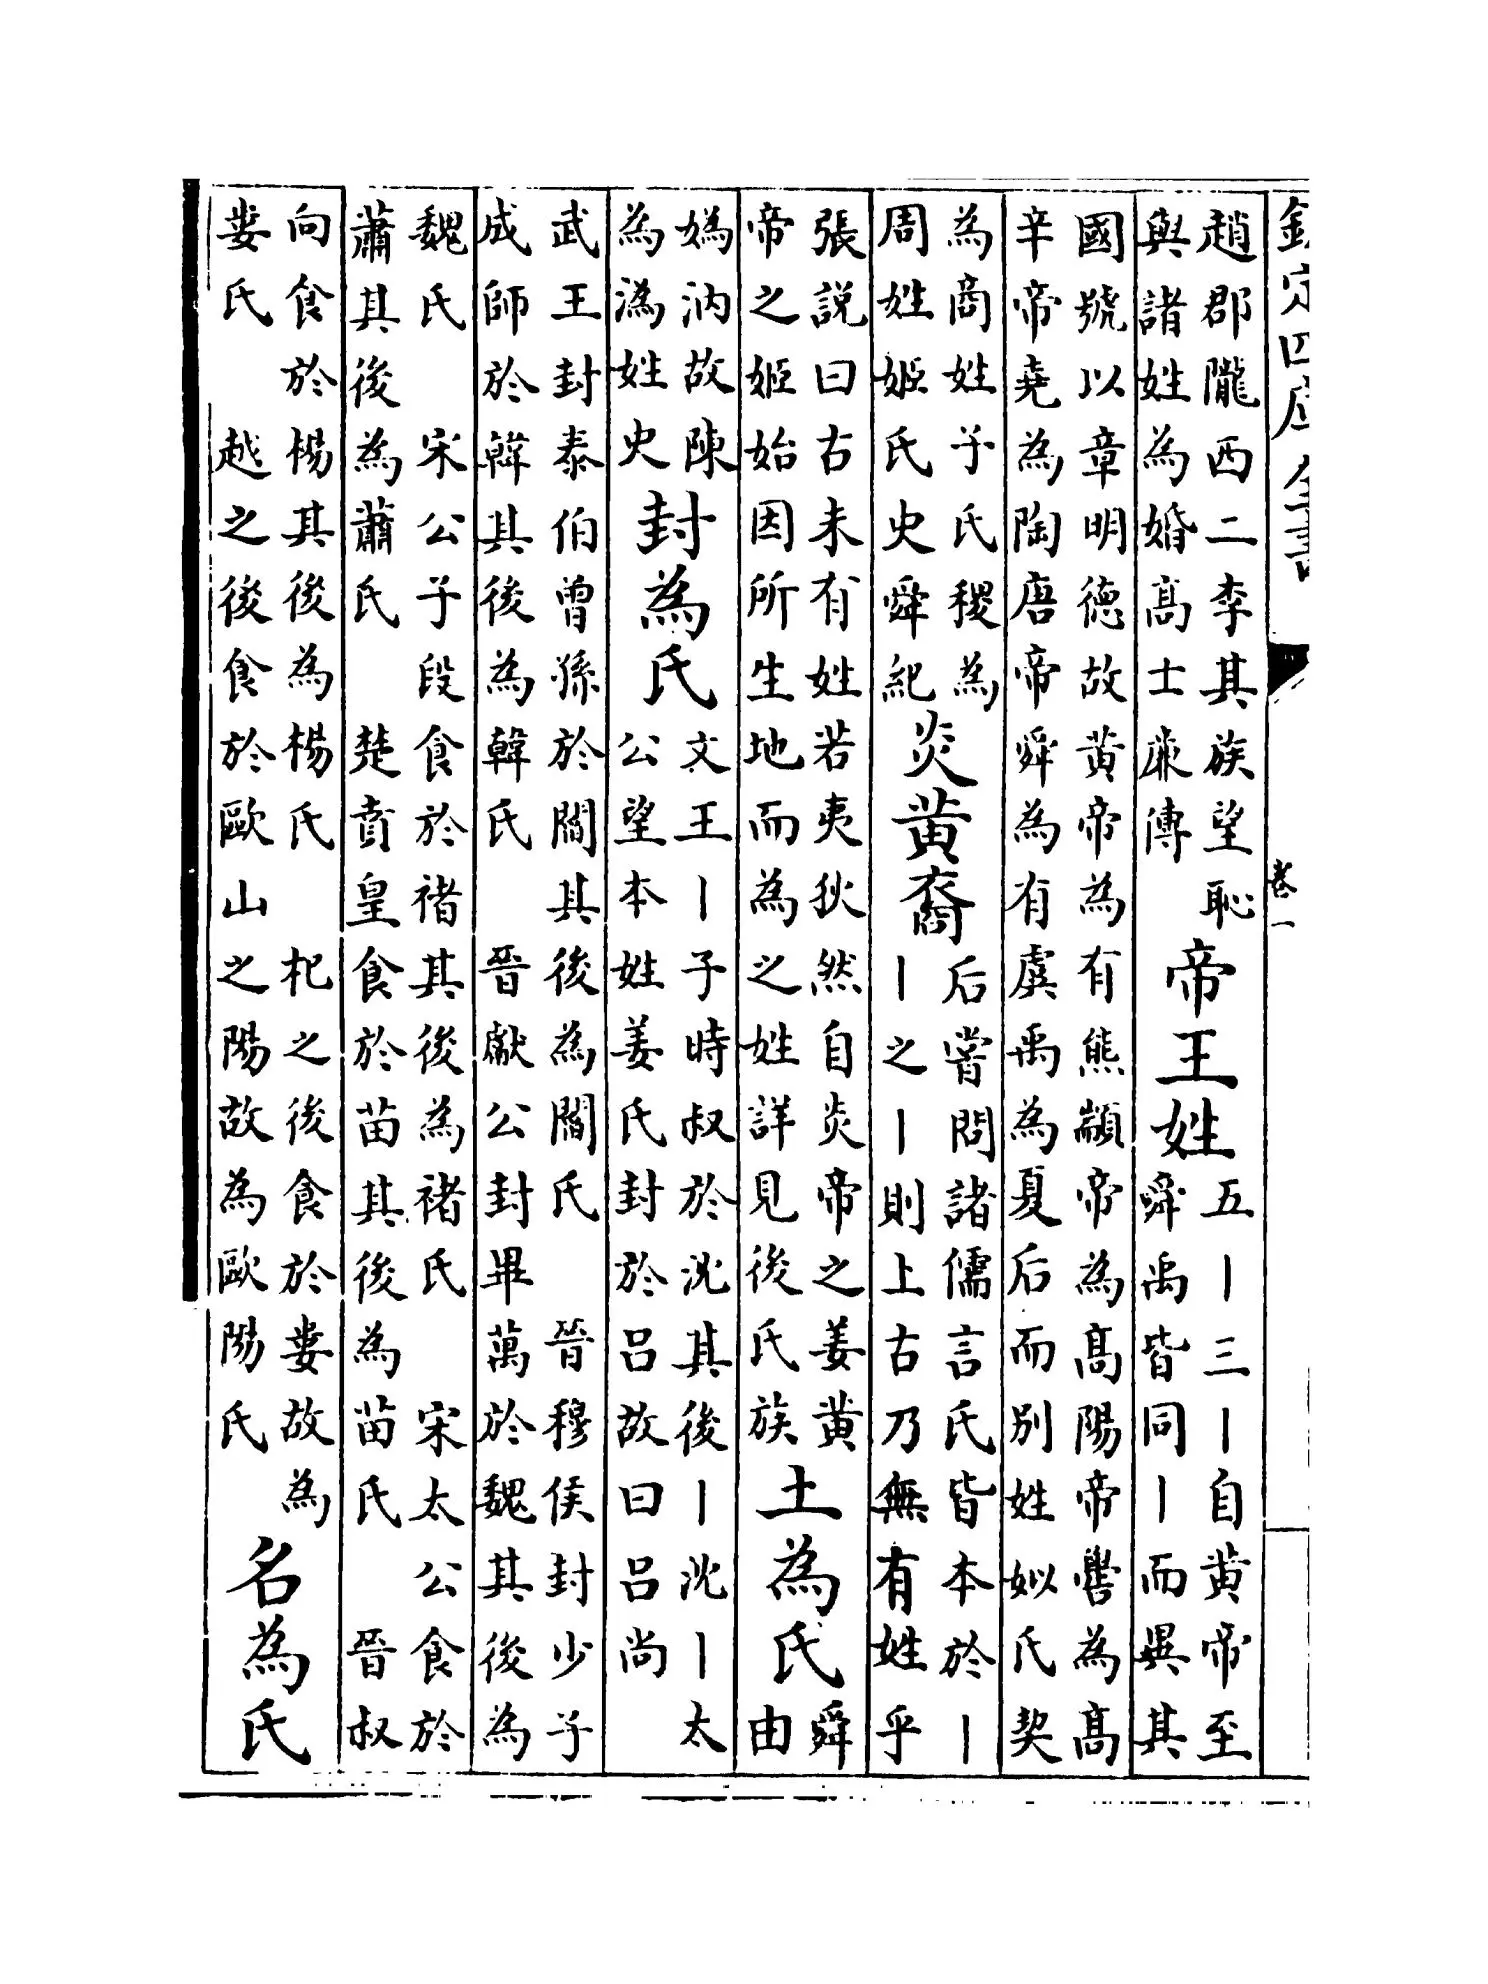 欽定四庫全書
卷一
趙郡隴西二李其族望恥
與諸姓為婚高士廉傳
帝王姓
五丨三丨自黄帝至
舜禹皆同丨而異其
國號以章明德故黄帝為有熊顓帝為高陽帝嚳為高
辛帝堯為陶唐帝舜為有虞禹為夏后而别姓姒氏契
為商姓子氏稷為
周姓姬氏史舜紀
炎黄裔
后嘗問諸儒言氏皆本於丨
丨之丨則上古乃無有姓乎
張説曰古未有姓若夷狄然自炎帝之姜黄
帝之姬始因所生地而為之姓詳見後氏族
土為氏
舜
由
媯汭故陳
為溈姓史
封為氏
文王丨子時叔於沈其後丨沈丨太
公望本姓姜氏封於吕故曰吕尚
武王封泰伯曾孫於閻其後為閻氏 晉穆侯封少子
成師於韓其後為韓氏 晉獻公封畢萬於魏其後為
魏氏 宋公子段食於褚其後為褚氏 宋太公食於
蕭其後為蕭氏 楚賁皇食於苗其後為苗氏 晉叔
向食於楊其後為楊氏 杞之後食於婁故為
婁氏 越之後食於歐山之陽故為歐陽氏
名為氏